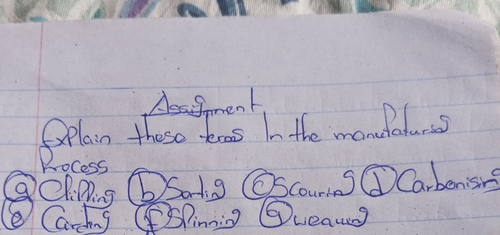 Assignment
Explain these terms In the manufatures
Process
(a) Clipping (b) Sorting (c) Scouring (d) Carbonising
(e) Carding (f) Spinning (g) weaving